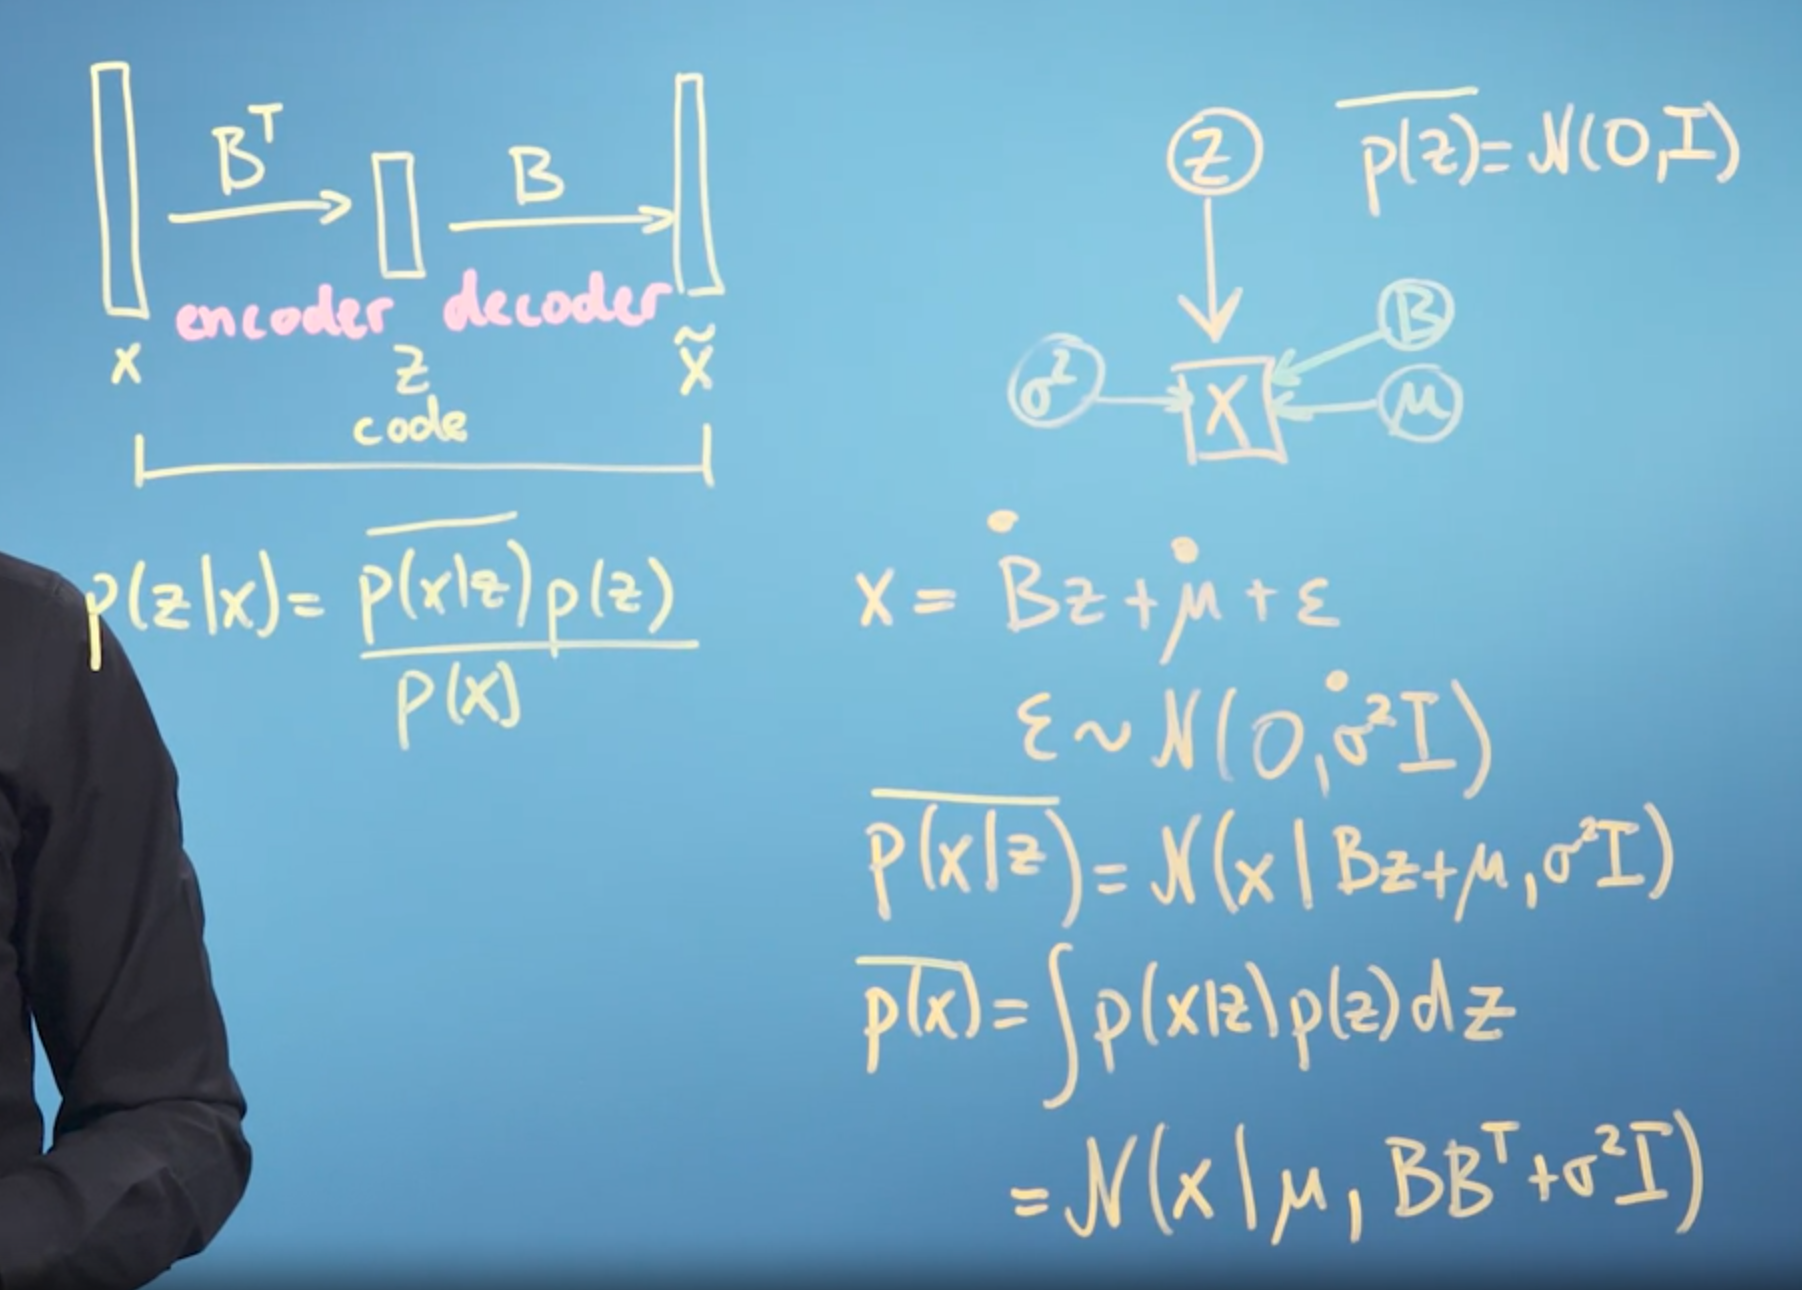 Bᵀ
B
encoder decoder
x
z
x̃
code
p(z|x) = p(x|z) p(z)
p(x)
z
p(z) = N(0, I)
B
σ²
X
μ
x = Bz + μ + ε
ε ~ N(0, σ²I)
p(x|z) = N(x | Bz + μ, σ²I)
p(x) = ∫ p(x|z) p(z) dz
= N(x | μ, BBᵀ + σ²I)